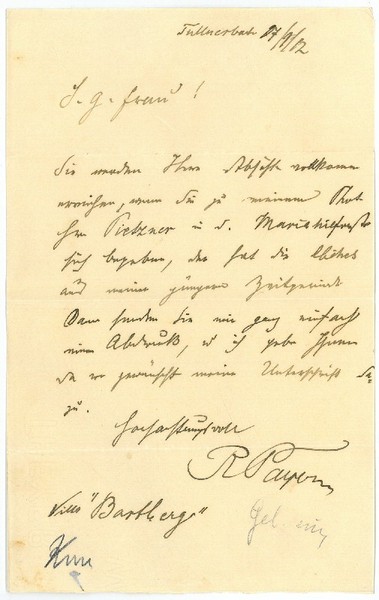 Tullnerbach 17/9/12
S. g. Frau!
Sie werden Ihre Absicht vollkommen
erreichen, wenn Sie zu meinem Phot
Hrn Pietzner in d. Mariahilferstr
sich begeben, der hat die Clichés
aus meiner jüngeren Zeit
Dann senden Sie mir ganz einfach
einen Abdruck, u ich gebe Ihnen
da wo gewünscht meine Unterschrift da-
zu.
Hochachtungsvoll
Villa "Bartberg"